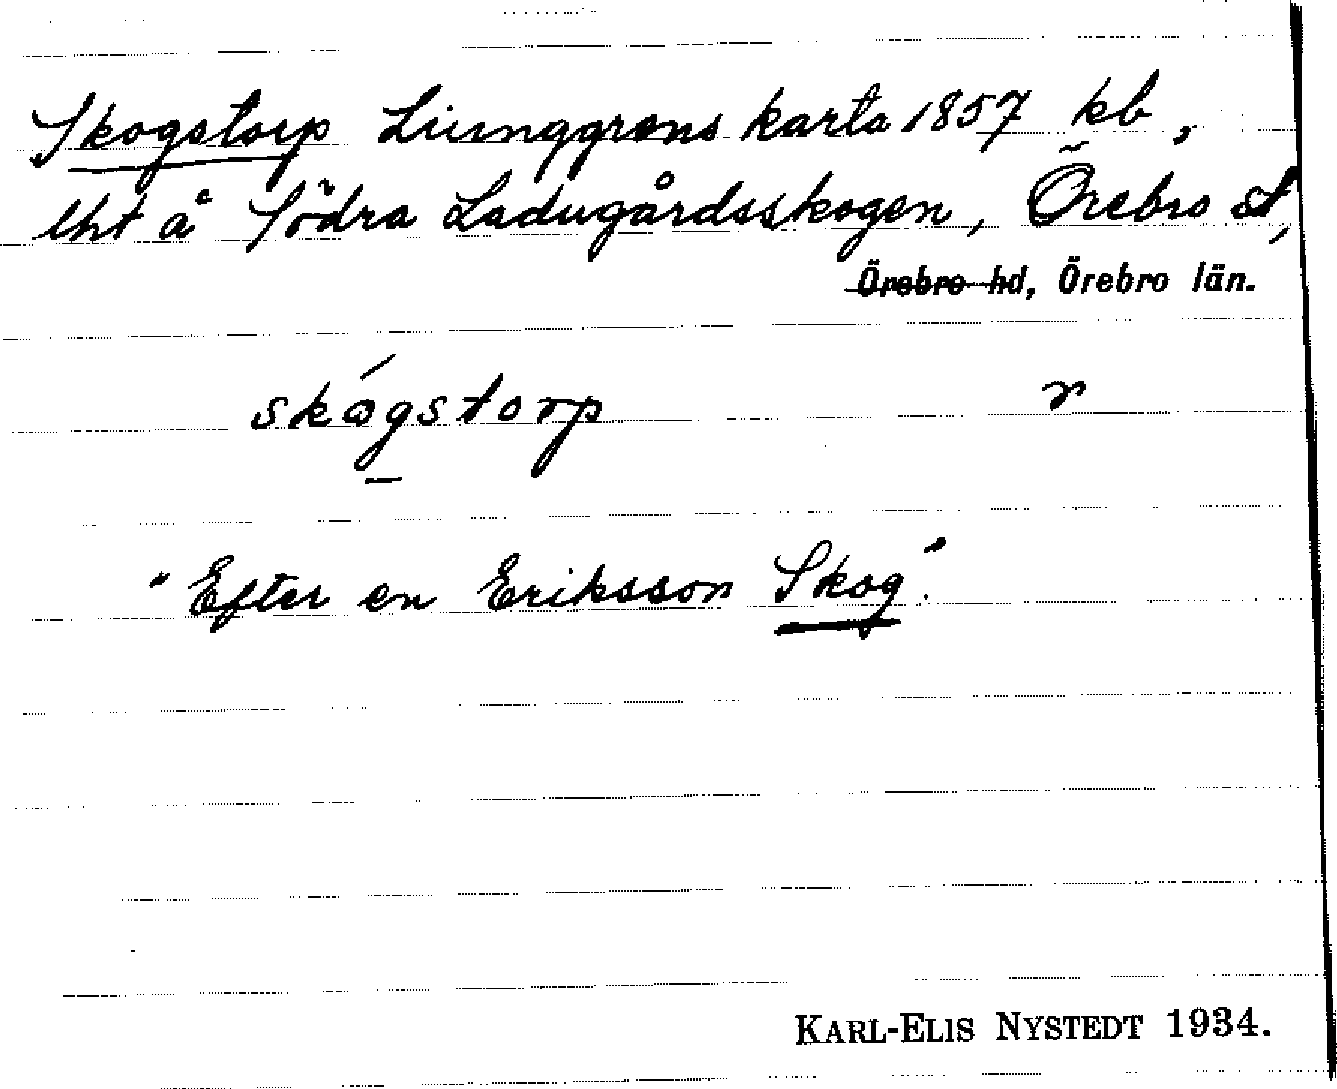 Skogstorp Liunggrens karta 1857 kb,
lht å Södra Ladugårdsskogen, Örebro st,
Örebro hd, Örebro län.
skógstorp r
"Efter en Eriksson Skog".
KARL-ELIS NYSTEDT 1934.